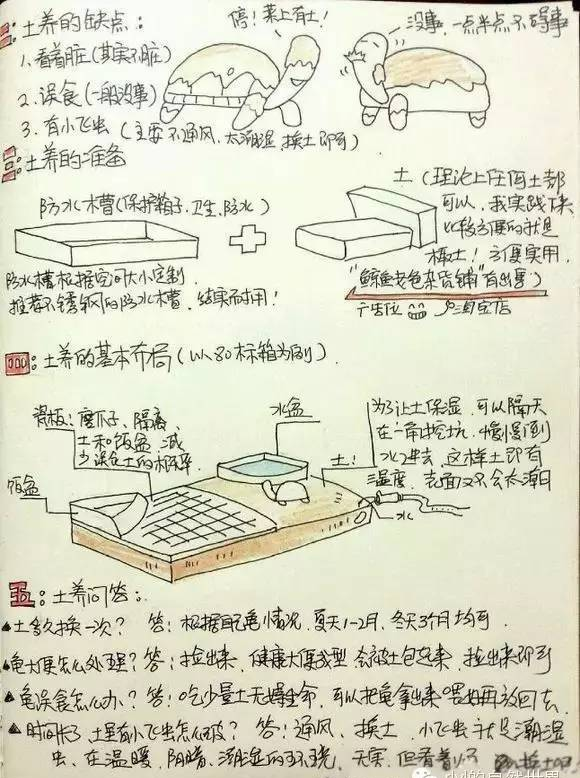 二：土养的缺点：
停！菜上有土！
没事，一点半点不碍事
1、看着脏（其实不脏）
2、误食（一般没事）
3、有小飞虫（主要不通风、太潮湿，换土即可）
三：土养的准备
防水槽（保护箱子、卫生、防水）
土（理论上任何土都
可以，我实践下来
比较方便的就是
椰土！方便实用，
"鲸鱼老爸杂货铺"有出售）
广告位 淘宝店
防水槽根据空间大小定制
推荐不锈钢的防水槽，结实耐用！
四：土养的基本布局（以80标箱为例）
瓷板：磨爪子、隔离
土和饭盆，减
少误食土的概率
水盆
饭盆
土！
水
为了让土保湿，可以隔天
在一角挖坑，慢慢倒
水进去，这样土即有
湿度，表面又不会太潮
五：土养问答：
▲土多久换一次？答：根据龟情况，夏天1-2月，冬天3个月均可
▲龟大便怎么处理？答：捡出来，健康大便成型，会被土包起来，捡出来即可
▲龟误食怎么办？答：吃少量土无婚全命，可以把龟拿出来喂好再放回去
▲时间长了，土里有小飞虫怎么破？答：通风、换土，小飞虫就是潮湿
虫、在温暖、阴暗、潮湿的环境，无害，但看着
的自然世界